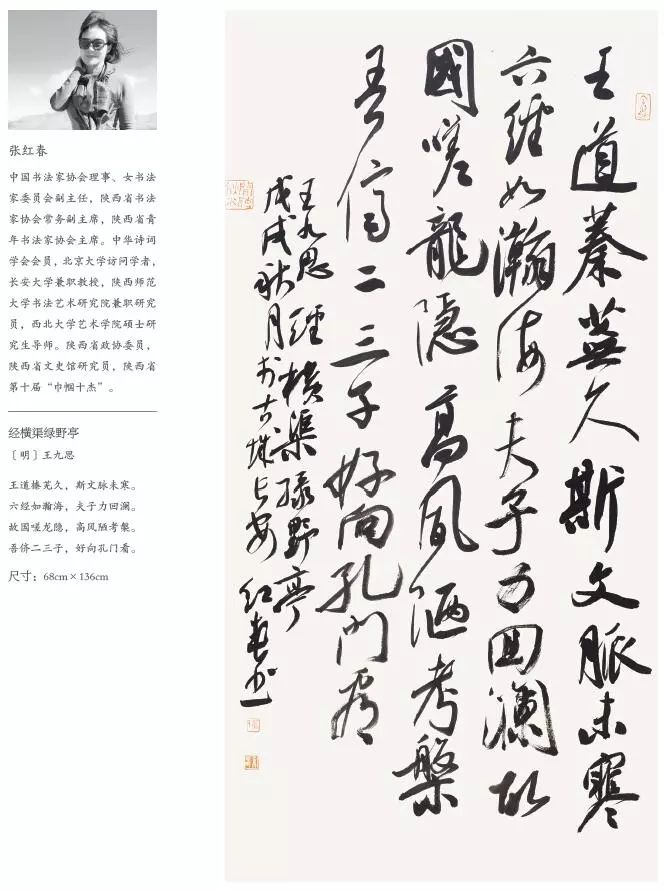 张红春
中国书法家协会理事、女书法
家委员会副主任，陕西省书法
家协会常务副主席，陕西省青
年书法家协会主席。中华诗词
学会会员，北京大学访问学者，
长安大学兼职教授，陕西师范
大学书法艺术研究院兼职研究
员，西北大学艺术学院硕士研
究生导师。陕西省政协委员，
陕西省文史馆研究员，陕西省
第十届“巾帼十杰”。
经横渠绿野亭
［明］王九思
王道榛芜久，斯文脉未寒。
六经如瀚海，夫子力回澜。
故国嗟龙隐，高风陋考槃。
吾侪二三子，好向孔门看。
尺寸：68cm×136cm
王道蓁蕪久斯文脈未寒
六經如瀚海夫子力回瀾故
國嗟龍隱高風陋考槃
吾儕二三子好向孔門看
王九思經橫渠綠野亭
戊戌秋月於古城長安紅春書